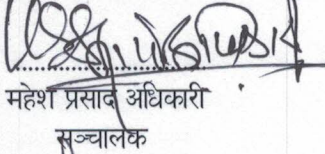 महेश प्रसाद अधिकारी
सञ्चालक